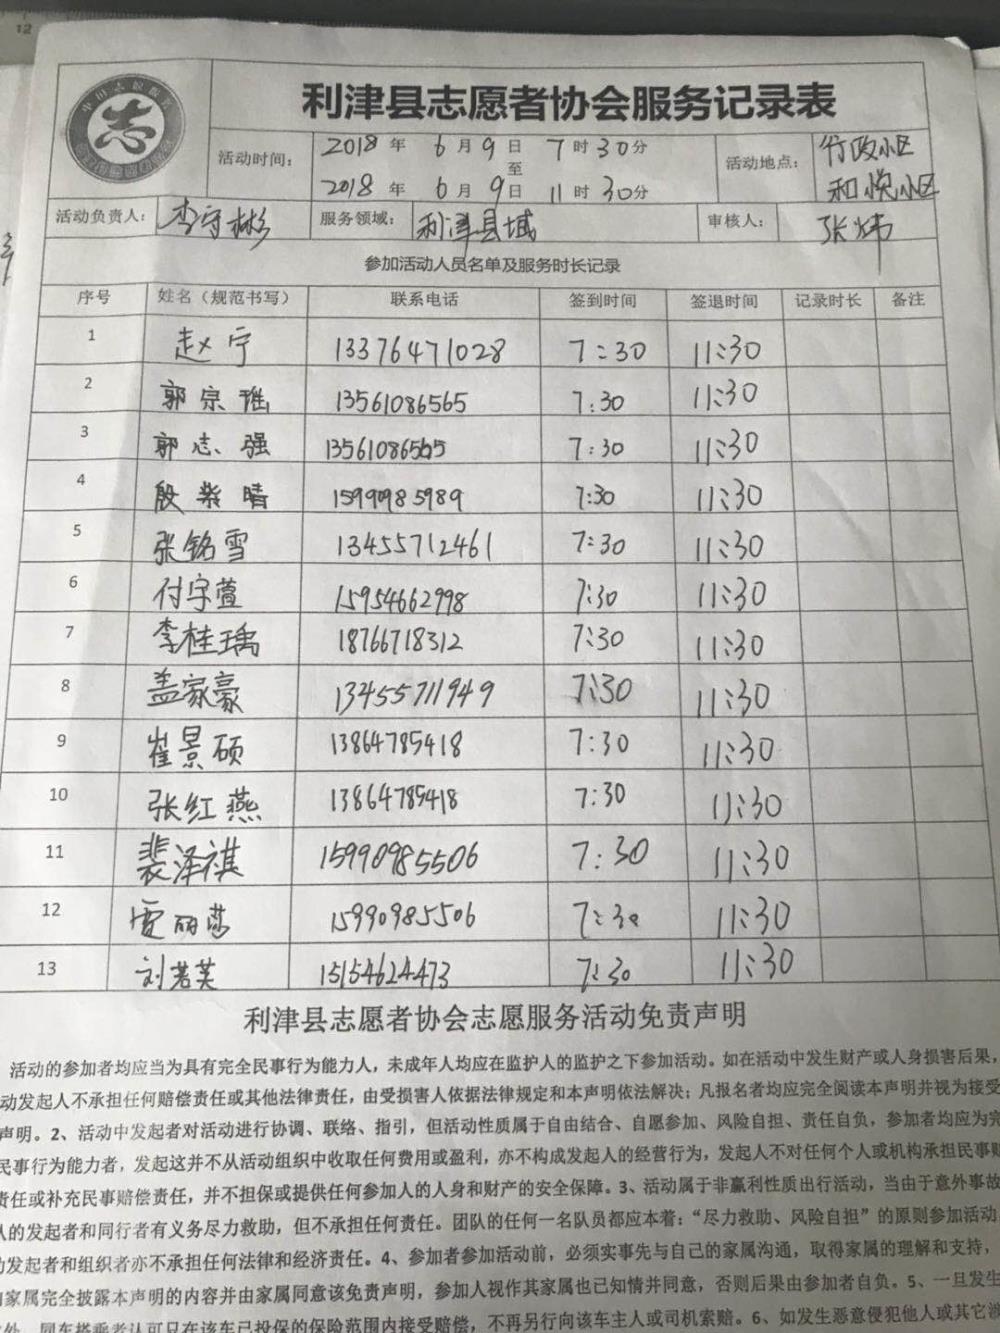 12
志
利津县志愿者协会服务记录表
活动时间： 2018 年 6 月 9 日 7 时 30 分
至
2018 年 6 月 9 日 11 时 30 分
活动地点： 行政小区
和悦小区
活动负责人： 李守彬 服务领域： 利津县城 审核人： 张炜
参加活动人员名单及服务时长记录
序号 姓名（规范书写） 联系电话 签到时间 签退时间 记录时长 备注
1 赵宁 13376471028 7:30 11:30
2 郭宗瑶 13561086565 7:30 11:30
3 郭志强 13561086565 7:30 11:30
4 殷紫晴 15990985989 7:30 11:30
5 张铭雪 13455712461 7:30 11:30
6 付宇萱 15954662998 7:30 11:30
7 李桂瑀 18766718312 7:30 11:30
8 盖家豪 13455711949 7:30 11:30
9 崔景硕 13864785418 7:30 11:30
10 张红燕 13864785418 7:30 11:30
11 裴泽祺 15990985506 7:30 11:30
12 贾丽 15990985506 7:30 11:30
13 刘若芙 15154624473 7:30 11:30
利津县志愿者协会志愿服务活动免责声明
活动的参加者均应当为具有完全民事行为能力人，未成年人均应在监护人的监护之下参加活动。如在活动中发生财产或人身损害后果，
动发起人不承担任何赔偿责任或其他法律责任，由受损害人依据法律规定和本声明依法解决；凡报名者均应完全阅读本声明并视为接受
声明。2、活动中发起者对活动进行协调、联络、指引，但活动性质属于自由结合、自愿参加、风险自担、责任自负，参加者均应为完
民事行为能力者，发起这并不从活动组织中收取任何费用或盈利，亦不构成发起人的经营行为，发起人不对任何个人或机构承担民事赔
责任或补充民事赔偿责任，并不担保或提供任何参加人的人身和财产的安全保障。3、活动属于非赢利性质出行活动，当由于意外事故
人的发起者和同行者有义务尽力救助，但不承担任何责任。团队的任何一名队员都应本着：“尽力救助、风险自担”的原则参加活动
发起者和组织者亦不承担任何法律和经济责任。4、参加者参加活动前，必须实事先与自己的家属沟通，取得家属的理解和支持，
家属完全披露本声明的内容并由家属同意该免责声明，参加人视作其家属也已知情并同意，否则后果由参加者自负。5、一旦发生
外，同车搭乘者认可只在该车已投保的保险范围内接受赔偿，不再另行向该车主人或司机索赔。6、如发生恶意侵犯他人或其它